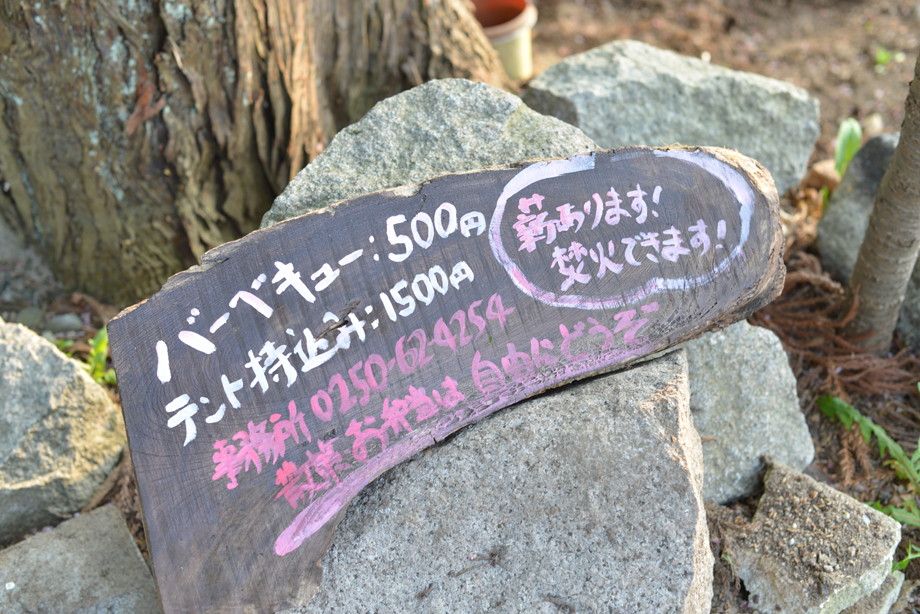 バーベキュー:500円
テント持込み:1500円
事務所 0250-62-4254
散策 お弁当は 自由にどうぞ
薪あります!
焚火できます!